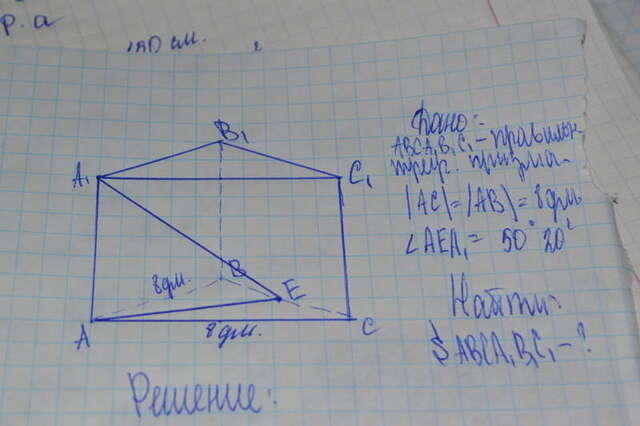 р. а
B₁
A₁
C₁
8дм.
B
E
A
8дм.
C
Дано:
ABCA₁B₁C₁ – правильн.
треуг. призма.
|AC|=|AB|=8дм
∠AEA₁= 50° 20'
Найти:
S ABCA₁B₁C₁ – ?
Решение: